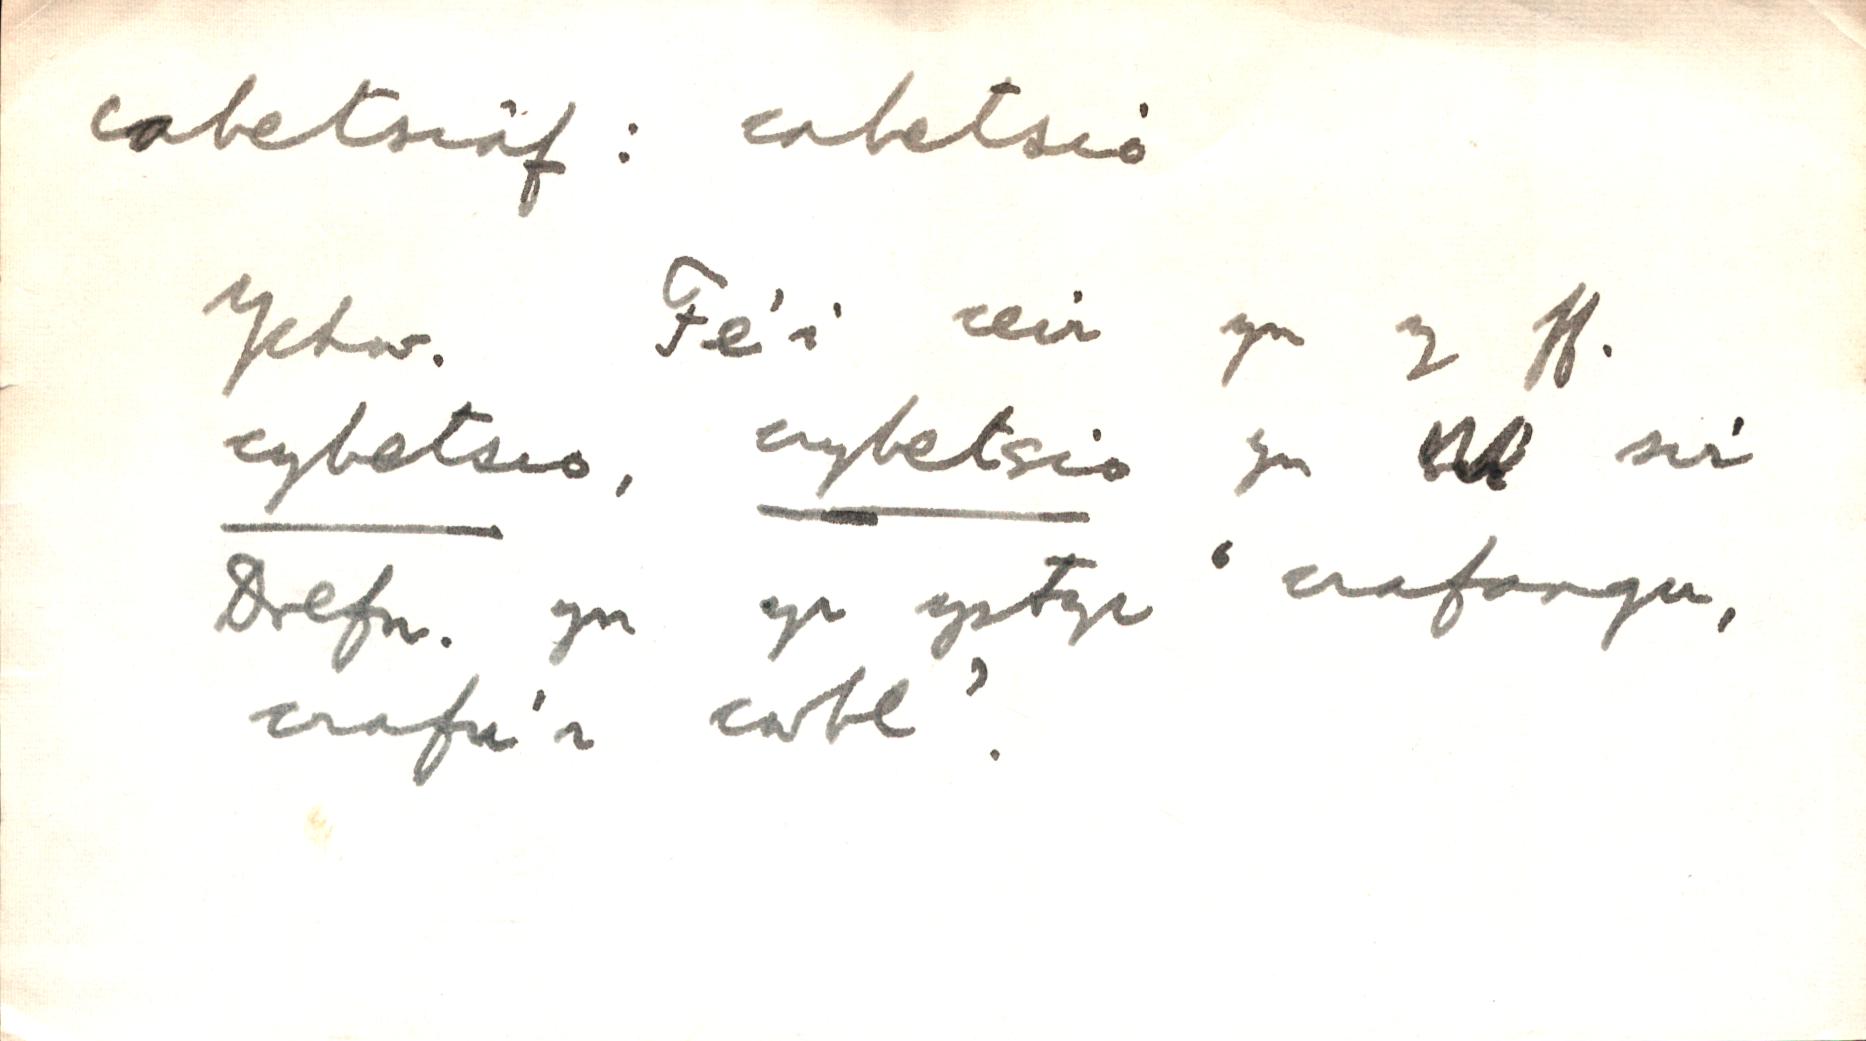 cabetsiaf: cabetsio
Ychw. Fe'i ceir yn y ff.
cybetsio, crybetsio yn sir
Drefn. yn yr ystyr 'crafangu,
crafu'r cwbl'.